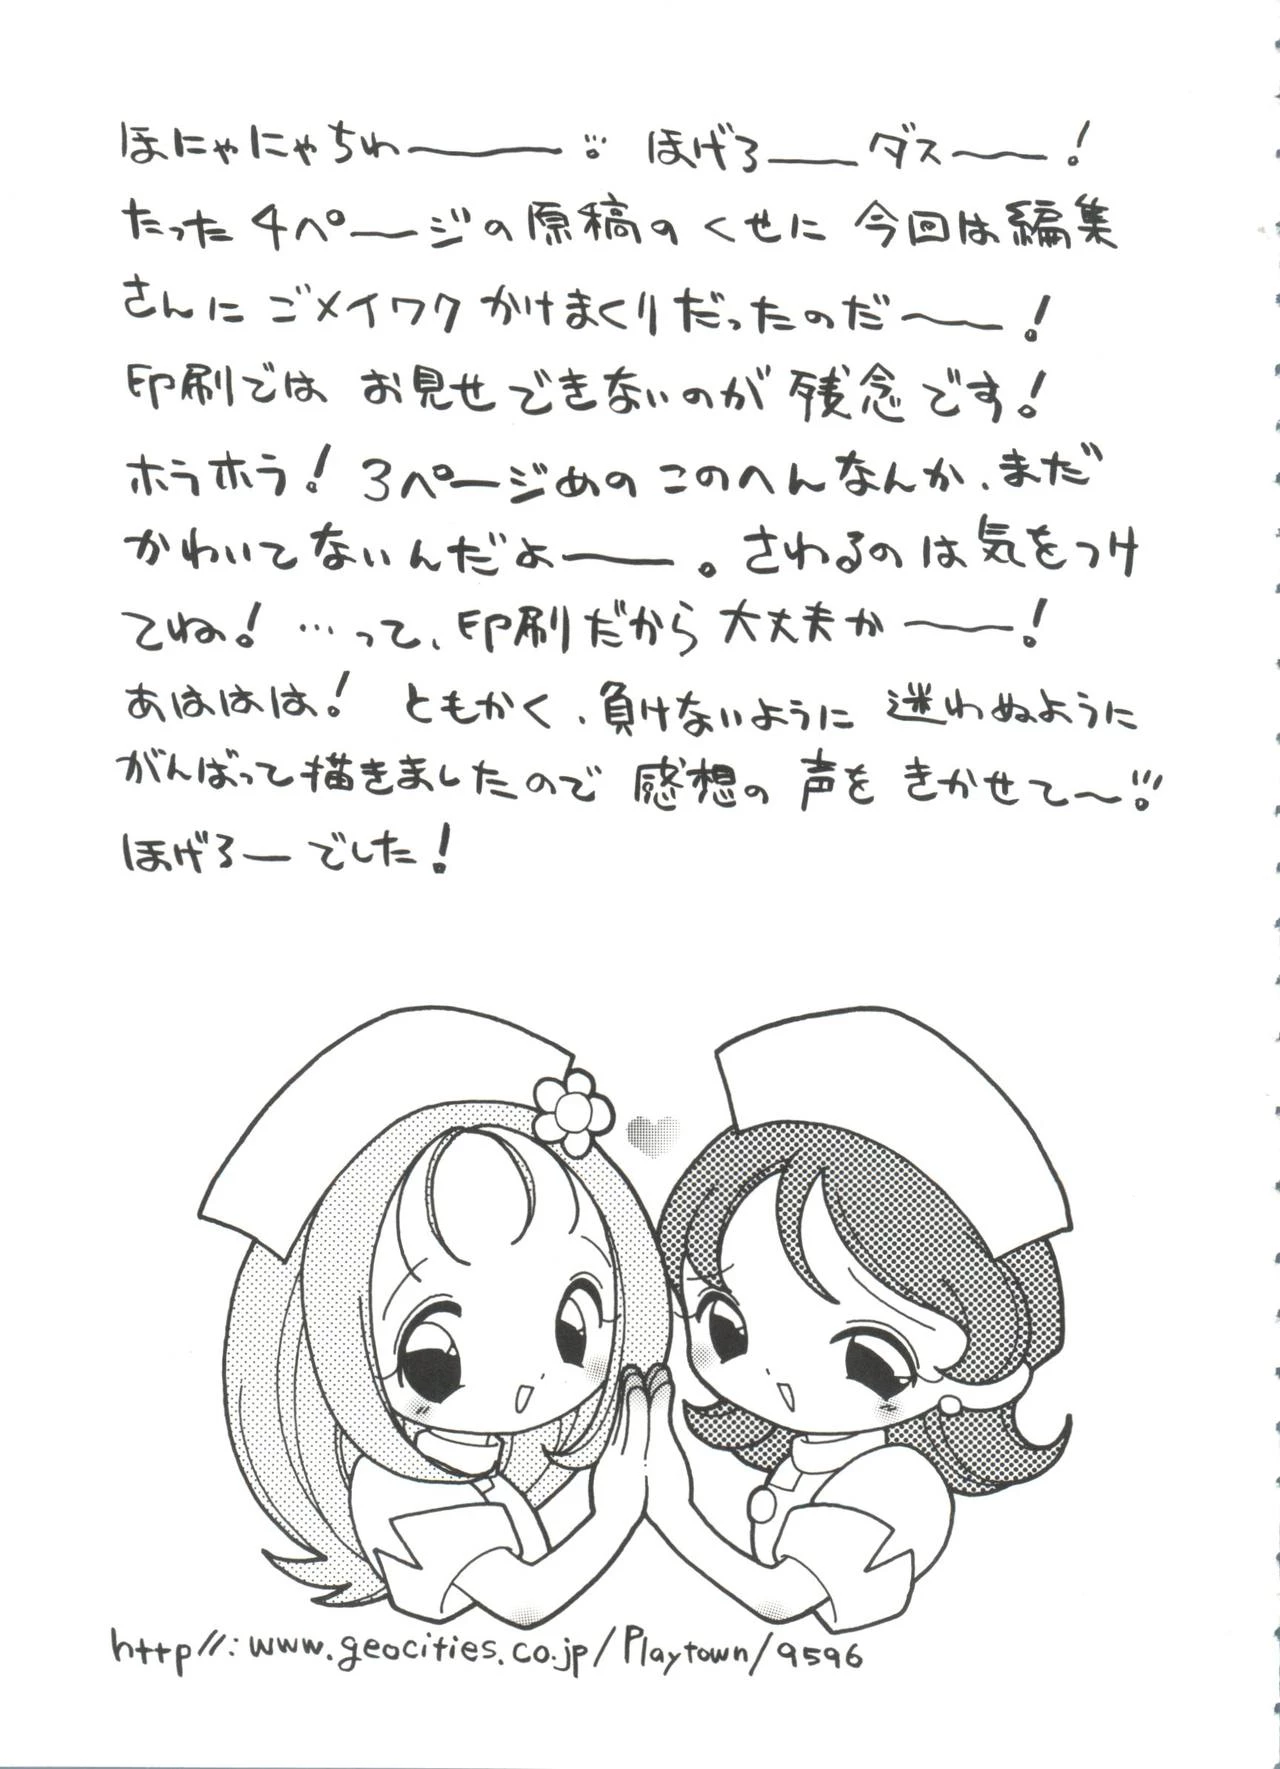 ほにゃにゃちわ——— ほげろ——ダス——!
たった4ページの原稿のくせに 今回は編集
さんに ゴメイワク かけまくりだったのだ——!
印刷では お見せできないのが 残念です!
ホラホラ! 3ページめの このへんなんか、まだ
かわいてないんだよ——。さわるのは気をつけ
てね! …って、印刷だから 大丈夫か——!
あははは! ともかく、負けないように 迷わぬように
がんばって描きましたので 感想の 声を きかせて〜
ほげろーでした!
http//:www.geocities.co.jp/Playtown/9596